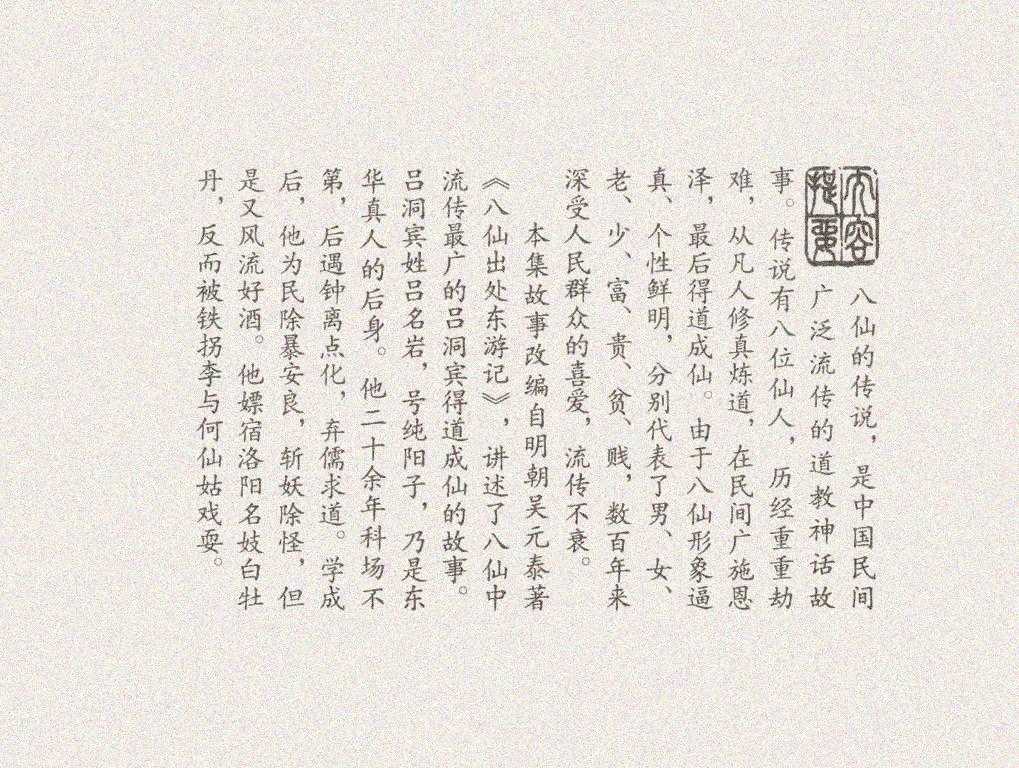 内容提要
八仙的传说，是中国民间
广泛流传的道教神话故
事。传说有八位仙人，历经重重劫
难，从凡人修真炼道，在民间广施恩
泽，最后得道成仙。由于八仙形象逼
真、个性鲜明，分别代表了男、女、
老、少、富、贵、贫、贱，数百年来
深受人民群众的喜爱，流传不衰。
本集故事改编自明朝吴元泰著
《八仙出处东游记》，讲述了八仙中
流传最广的吕洞宾得道成仙的故事。
吕洞宾姓吕名岩，号纯阳子，乃是东
华真人的后身。他二十余年科场不
第，后遇钟离点化，弃儒求道。学成
后，他为民除暴安良，斩妖除怪，但
是又风流好酒。他嫖宿洛阳名妓白牡
丹，反而被铁拐李与何仙姑戏耍。